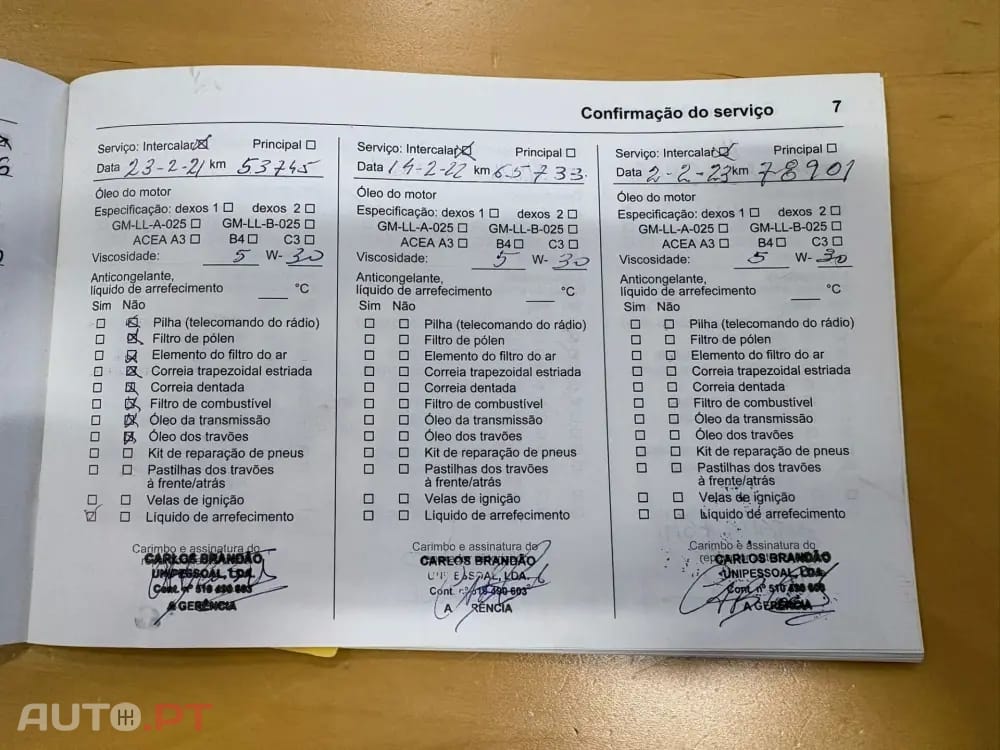 Confirmação do serviço 7
Serviço: Intercalar ☒ Principal ☐
Data 23-2-21 km 53745
Óleo do motor
Especificação: dexos 1 ☐ dexos 2 ☐
GM-LL-A-025 ☐ GM-LL-B-025 ☐
ACEA A3 ☐ B4 ☐ C3 ☐
Viscosidade: 5 W- 30
Anticongelante,
líquido de arrefecimento ___ °C
Sim Não
☐ ☒ Pilha (telecomando do rádio)
☐ ☒ Filtro de pólen
☐ ☒ Elemento do filtro do ar
☐ ☒ Correia trapezoidal estriada
☐ ☒ Correia dentada
☐ ☒ Filtro de combustível
☐ ☒ Óleo da transmissão
☐ ☒ Óleo dos travões
☐ ☐ Kit de reparação de pneus
☐ ☐ Pastilhas dos travões
à frente/atrás
☐ ☐ Velas de ignição
☒ ☐ Líquido de arrefecimento
Carimbo e assinatura do
CARLOS BRANDÃO
UNIPESSOAL, LDA.
Cont. nº 510 490 603
A GERÊNCIA
Serviço: Intercalar ☒ Principal ☐
Data 14-2-22 km 65733
Óleo do motor
Especificação: dexos 1 ☐ dexos 2 ☐
GM-LL-A-025 ☐ GM-LL-B-025 ☐
ACEA A3 ☐ B4 ☐ C3 ☐
Viscosidade: 5 W- 30
Anticongelante,
líquido de arrefecimento ___ °C
Sim Não
☐ ☐ Pilha (telecomando do rádio)
☐ ☐ Filtro de pólen
☐ ☐ Elemento do filtro do ar
☐ ☐ Correia trapezoidal estriada
☐ ☐ Correia dentada
☐ ☐ Filtro de combustível
☐ ☐ Óleo da transmissão
☐ ☐ Óleo dos travões
☐ ☐ Kit de reparação de pneus
☐ ☐ Pastilhas dos travões
à frente/atrás
☐ ☐ Velas de ignição
☐ ☐ Líquido de arrefecimento
Carimbo e assinatura do
CARLOS BRANDÃO
LDA.
Cont. nº 510 490 603
A RÊNCIA
Serviço: Intercalar ☒ Principal ☐
Data 2-2-23 km 78901
Óleo do motor
Especificação: dexos 1 ☐ dexos 2 ☐
GM-LL-A-025 ☐ GM-LL-B-025 ☐
ACEA A3 ☐ B4 ☐ C3 ☐
Viscosidade: 5 W- 30
Anticongelante,
líquido de arrefecimento ___ °C
Sim Não
☐ ☐ Pilha (telecomando do rádio)
☐ ☐ Filtro de pólen
☐ ☐ Elemento do filtro do ar
☐ ☐ Correia trapezoidal estriada
☐ ☐ Correia dentada
☐ ☐ Filtro de combustível
☐ ☐ Óleo da transmissão
☐ ☐ Óleo dos travões
☐ ☐ Kit de reparação de pneus
☐ ☐ Pastilhas dos travões
à frente/atrás
☐ ☐ Velas de ignição
☐ ☐ Líquido de arrefecimento
Carimbo e assinatura do
CARLOS BRANDÃO
UNIPESSOAL, LDA.
Cont. nº 510 490 603
A GERÊNCIA
AUTO.PT